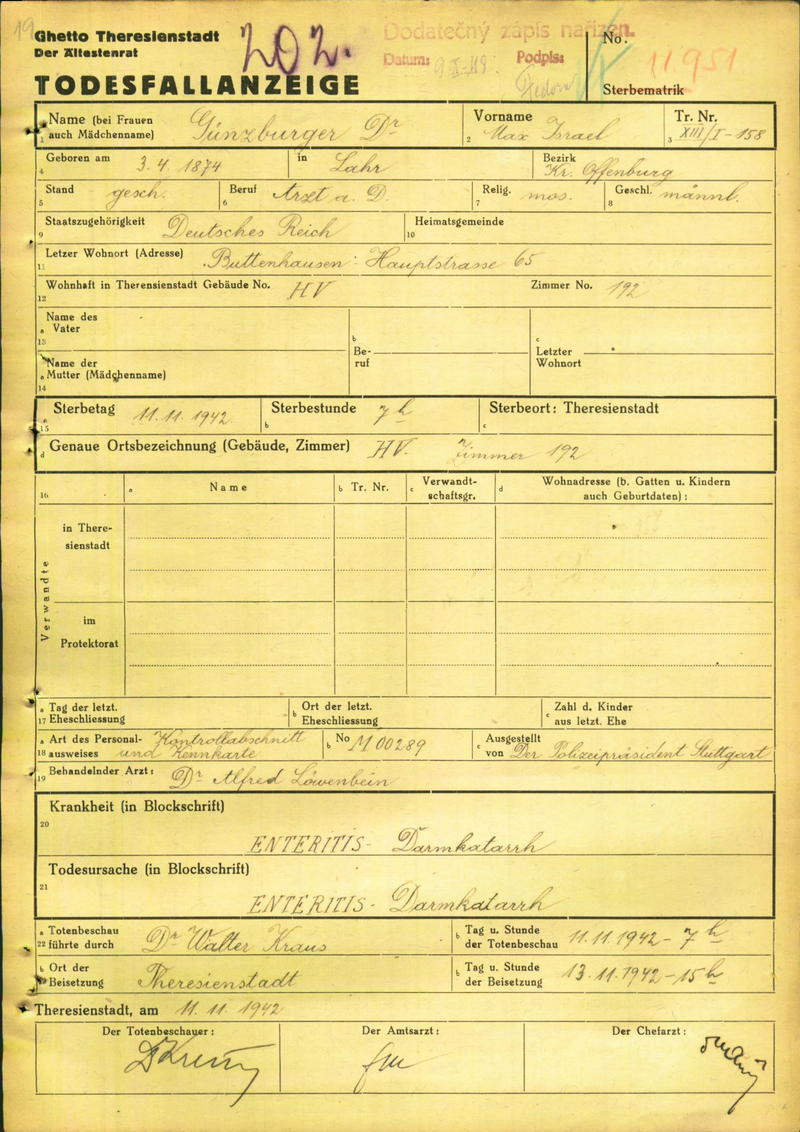 19
Ghetto Theresienstadt
Der Ältestenrat
TODESFALLANZEIGE
202.
Dodatečný zápis nařízen.
Datum: Podpis:
No. 11951
Sterbematrik
Name (bei Frauen auch Mädchenname) Günzburger Dr
1
Vorname Max Israel
2
Tr. Nr. XIII/I-158
3
Geboren am 3.4. 1874 in Lahr Bezirk Kr. Offenburg
4
Stand gesch. Beruf Arzt a. D. Relig. mos. Geschl. männl.
5 6 7 8
Staatszugehörigkeit Deutsches Reich Heimatsgemeinde
9 10
Letzer Wohnort (Adresse) Buttenhausen: Hauptstrasse 65
11
Wohnhaft in Theresienstadt Gebäude No. HV Zimmer No. 192
12
Name des
a Vater
13
b Beruf
c Letzter Wohnort
Name der
a Mutter (Mädchenname)
14
Sterbetag 11.11.1942 Sterbestunde 7 h Sterbeort: Theresienstadt
a 15 b c
d Genaue Ortsbezeichnung (Gebäude, Zimmer) HV. Zimmer 192
16 a Name b Tr. Nr. c Verwandtschaftsgr. d Wohnadresse (b. Gatten u. Kindern auch Geburtdaten):
Verwandte
in Theresienstadt
im Protektorat
a Tag der letzt. b Ort der letzt. c Zahl d. Kinder
17 Eheschliessung Eheschliessung aus letzt. Ehe
a Art des Personal- Kontrollabschnitt b No M 00289 c Ausgestellt
18 ausweises und Kennkarte von Der Polizeipräsident Stuttgart
19 Behandelnder Arzt: Dr Alfred Löwenbein
Krankheit (in Blockschrift)
20
ENTERITIS- Darmkatarrh
Todesursache (in Blockschrift)
21
ENTERITIS- Darmkatarrh
a Totenbeschau b Tag u. Stunde
22 führte durch Dr Walter Kraus der Totenbeschau 11.11.1942 - 7 h
b Ort der b Tag u. Stunde
Beisetzung Theresienstadt der Beisetzung 13.11.1942 - 15 h
Theresienstadt, am 11.11.1942
Der Totenbeschauer: Der Amtsarzt: Der Chefarzt: